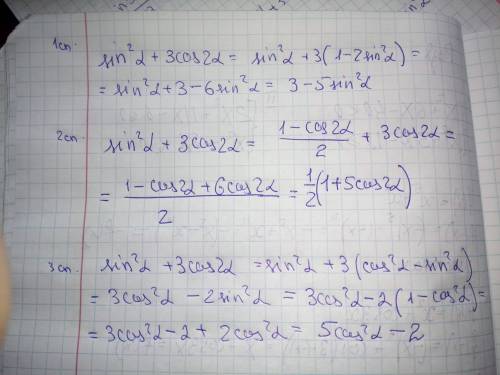 1сп. sin²α + 3cos2α = sin²α + 3(1-2sin²α) =
= sin²α + 3 - 6sin²α = 3 - 5sin²α
2сп. sin²α + 3cos2α = (1-cos2α)/2 + 3cos2α =
= (1-cos2α+6cos2α)/2 = 1/2(1+5cos2α)
3сп. sin²α + 3cos2α = sin²α + 3(cos²α-sin²α)
= 3cos²α - 2sin²α = 3cos²α - 2(1-cos²α) =
= 3cos²α - 2 + 2cos²α = 5cos²α - 2